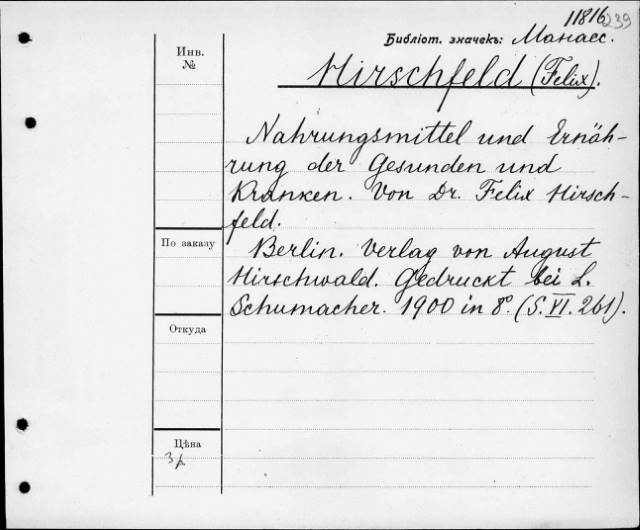 11816 239
Библіот. значекъ: Манасс.
Инв.
№
Hirschfeld (Felix).
Nahrungsmittel und Ernäh-
rung der Gesunden und
Kranken. Von Dr. Felix Hirsch-
feld.
По заказу
Berlin. Verlag von August
Hirschwald. Gedruckt bei L.
Schumacher. 1900 in 8°. (S. VI. 261).
Откуда
Цѣна
3 р